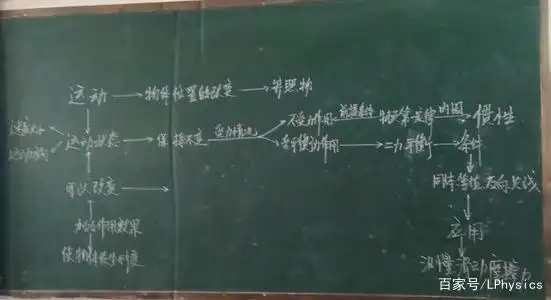 运动 → 物体位置的改变 → 参照物
速度大小
运动方向
运动状态 → 保持不变 受力情况
不受力作用 前提条件 牛顿第一定律 内因 惯性
受平衡力作用 → 二力平衡 → 条件
同体 等值 反向 共线
可以改变 →
力的作用效果
使物体发生形变
应用
测量滑动摩擦力
百家号/LPhysics